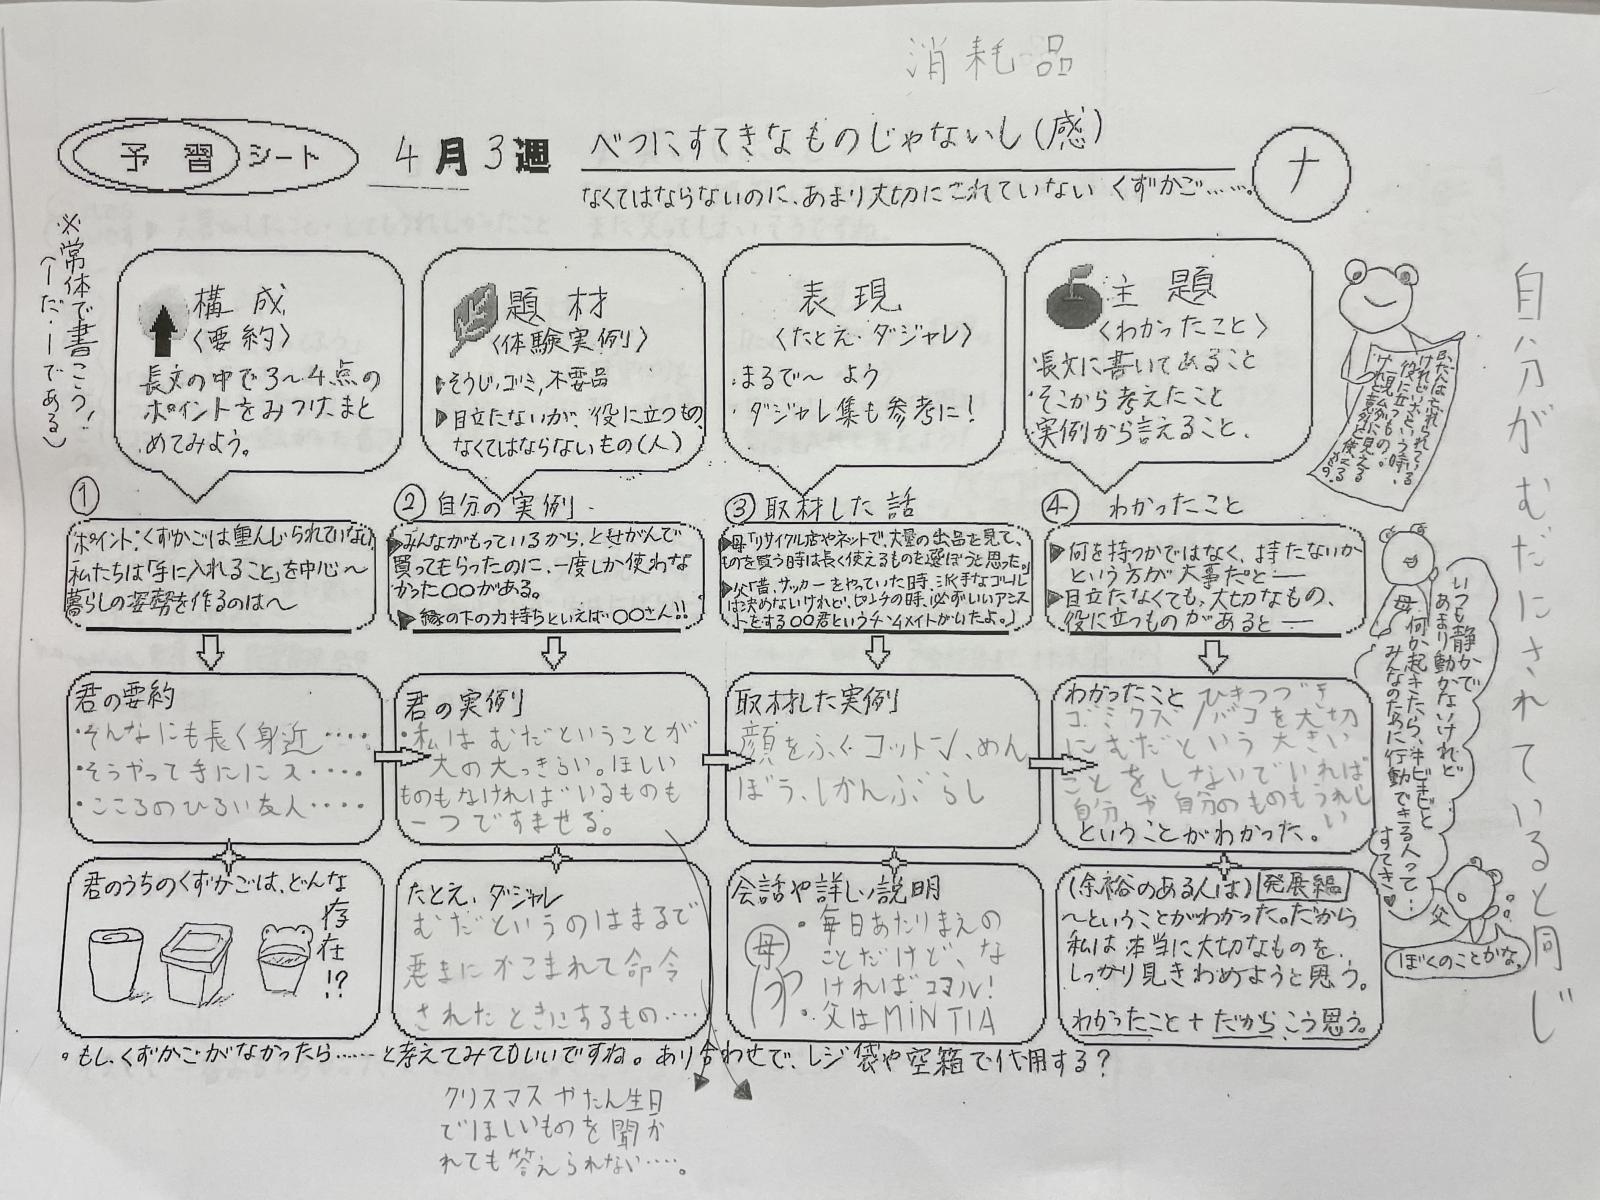 消耗品
予習シート
4月3週
べつにすてきなものじゃないし(感)
ナ
なくてはならないのに、あまり大切にされていない くずかご……。
※常体で書こう!
(〜だ・〜である)
構成
〈要約〉
長文の中で3〜4点の
ポイントをみつけ、まと
めてみよう。
題材
〈体験実例〉
そうじ、ゴミ、不要品
目立たないが、役に立つもの、
なくてはならないもの(人)
表現
〈たとえ・ダジャレ〉
・まるで〜よう
・ダジャレ集も参考に!
主題
〈わかったこと〉
・長文に書いてあること
・そこから考えたこと
・実例から言えること、
①
ポイント:くずかごは重んじられていない
私たちは「手に入れること」を中心〜
暮らしの姿勢を作るのは〜
②自分の実例
みんながもっているから、とせがんで
買ってもらったのに、一度しか使わな
かった〇〇がある。
縁の下の力持ちといえば〇〇さん!!
③取材した話
母「リサイクル店やネットで、大量の出品を見て、
ものを買う時は長く使えるものを選ぼうと思った。」
父「昔、サッカーをやっていた時、派手なゴール
は決めないけれど、ピンチの時、必ずいいアシス
トをする〇〇君というチームメイトがいたよ。」
④わかったこと
何を持つかではなく、持たないか
という方が大事だと―
目立たなくても、大切なもの、
役に立つものがあると―
君の要約
・そんなにも長く身近‥‥
・そうやって手にに入‥‥
・こころのひろい友人‥‥
君の実例
・私はむだということが
大の大っきらい。ほしい
ものもなければいるものも
一つですませる。
取材した実例
顔をふくコットン、めん
ぼう、しかんぶらし
わかったこと ひきつづき
ゴミクズ/バコを大切
にむだという大きい
ことをしないでいれば
自分や自分のものもうれしい
ということがわかった。
君のうちのくずかごは、どんな
存在!?
たとえ、ダジャレ
むだというのはまるで
悪まにかこまれて命令
されたときにするもの‥‥
会話や詳しい説明
母
・毎日あたりまえの
ことだけど、な
ければコマル!
・父はMINTIA
(余裕のある人は)発展編
〜ということがわかった。だから
私は本当に大切なものを、
しっかり見きわめようと思う。
わかったこと+だから こう思う。
。もし、くずかごがなかったら……と考えてみてもいいですね。あり合わせで、レジ袋や空箱で代用する?
クリスマスやたん生日
でほしいものを聞か
れても答えられない‥‥。
いつも静かで
あまり動かないけれど
何か起きたら、キビキビと
みんなのために行動できる人って…
すてき♥
母
父
ぼくのことかな。
自分がむだにされていると同じ